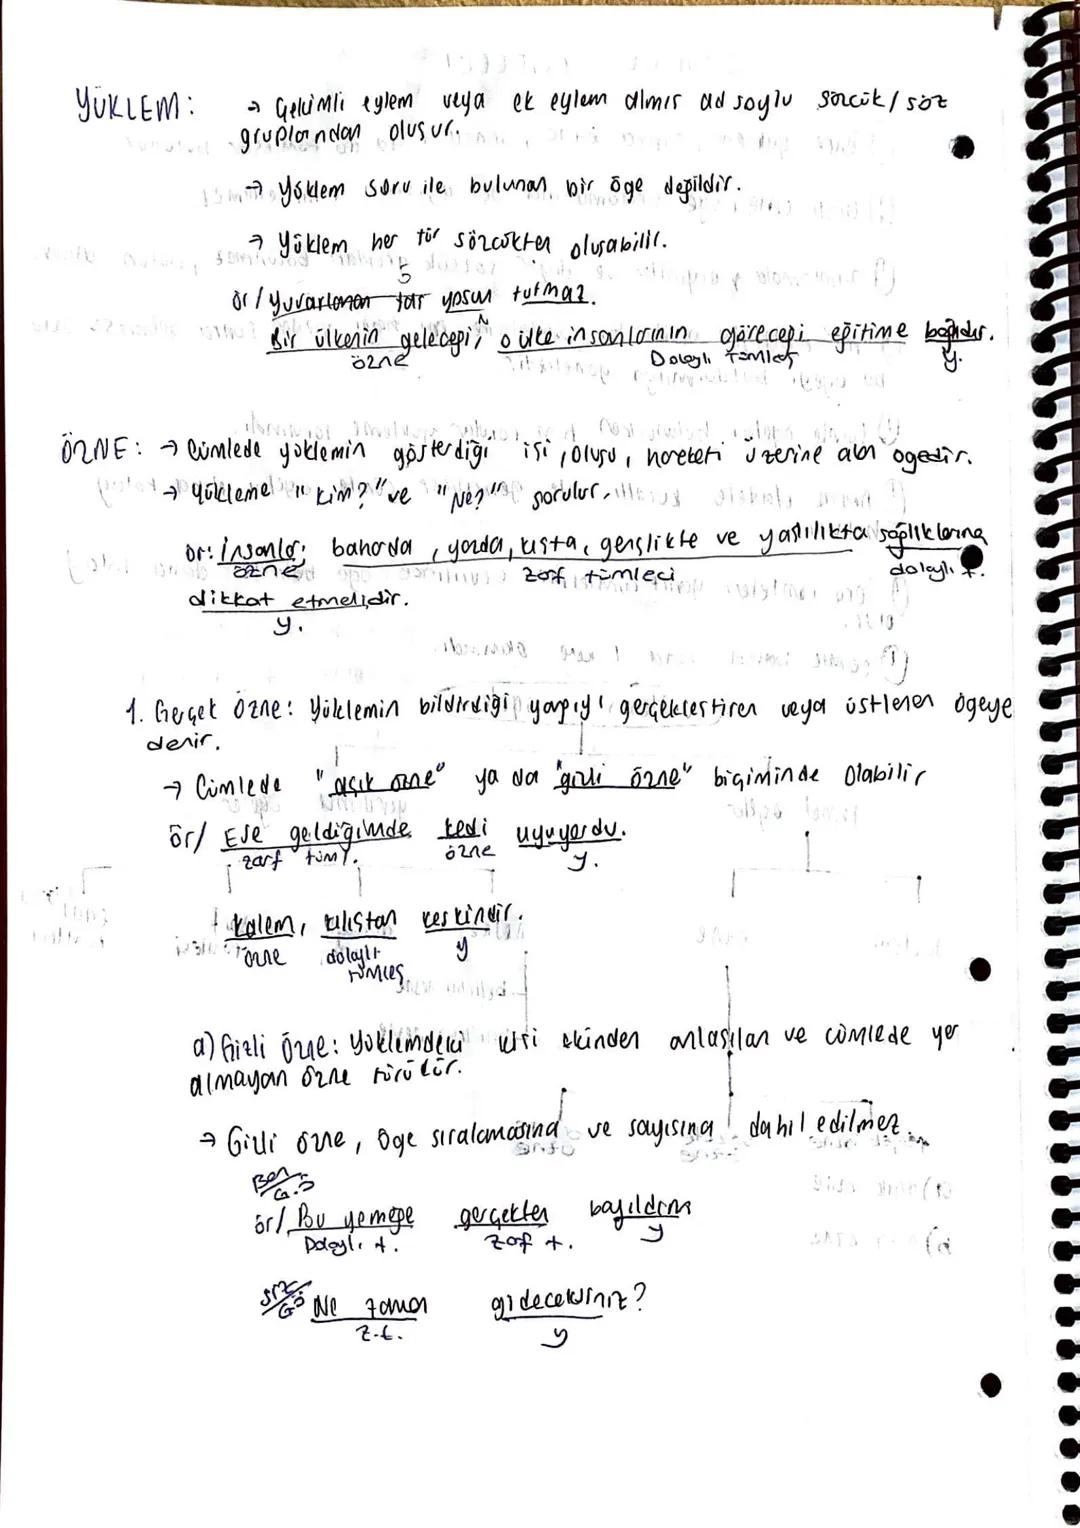 YÜKLEM: → Çekimli eylem veya ek eylem almış ad soylu sözcük / söz
gruplarından oluşur.
→ Yüklem soru ile bulunan bir öge değildir.
→ Yüklem her tür sözcükten oluşabilir.
ör / Yuvarlanan taş yosun tutmaz.
Bir ülkenin geleceği, o ülke insanlarının göreceği eğitime bağlıdır.
özne Dolaylı Tümleç y.
ÖZNE: → Cümlede yüklemin gösterdiği işi, oluşu, hareketi üzerine alan ögedir.
→ Yükleme "kim?" ve "Ne?" sorulur.
ör: İnsanlar; baharda, yazda, kışta, gençlikte ve yaşlılıkta sağlıklarına
özne zarf tümleci dolaylı t.
dikkat etmelidir.
y.
1. Gerçek Özne: Yüklemin bildirdiği yargıyı gerçekleştiren veya üstlenen ögeye
denir.
→ Cümlede "açık özne" ya da "gizli özne" biçiminde olabilir
ör/ Eve geldiğimde kedi uyuyordu.
zarf tüml. özne y.
Kalem, kılıçtan keskindir.
özne dolaylı y
tümleç
a) Gizli Özne: Yüklemdeki kişi ekinden anlaşılan ve cümlede yer
almayan özne türüdür.
→ Gizli özne, öge sıralamasına ve sayısına dahil edilmez.
Ben
G.Ö
ör/ Bu yemeğe gerçekten bayıldım
Dolaylı t. zarf t. y
Siz
GÖ Ne zaman gideceksiniz?
z.t. y